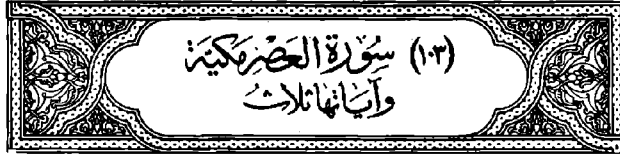 (١٠٣) سُورَةُ العَصْرِ مَكِيَّة
وَآيَاتُهَا ثَلَاثُ